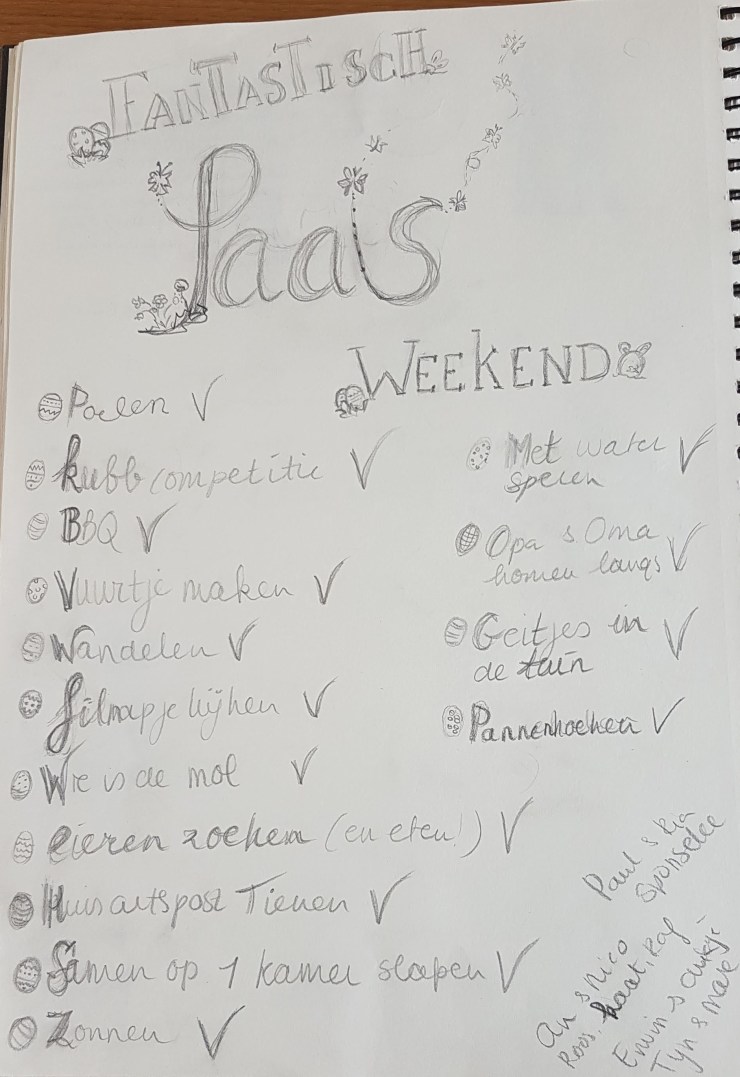 FANTASTISCH
Paas
WEEKEND
Poelen V
Kubb competitie V
BBQ V
Vuurtje maken V
Wandelen V
filmapje kijken V
Wie is de mol V
eieren zoeken (en eten!) V
Huisartspost Tienen V
Samen op 1 kamer slapen V
Zonnen V
Met water V
spelen
Opa & Oma
komen langs V
Geitjes in V
de tuin
Pannenkoeken V
Paul & Ria
Sponselee
An & Nico
Roos, Kaat, Raf
Erwin &
Tyn &